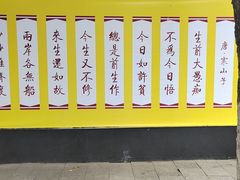 唐·寒山子
生前大愚痴
不為今日悟
今日如許貧
總是前生作
今生又不修
來生還如故
兩岸各無船